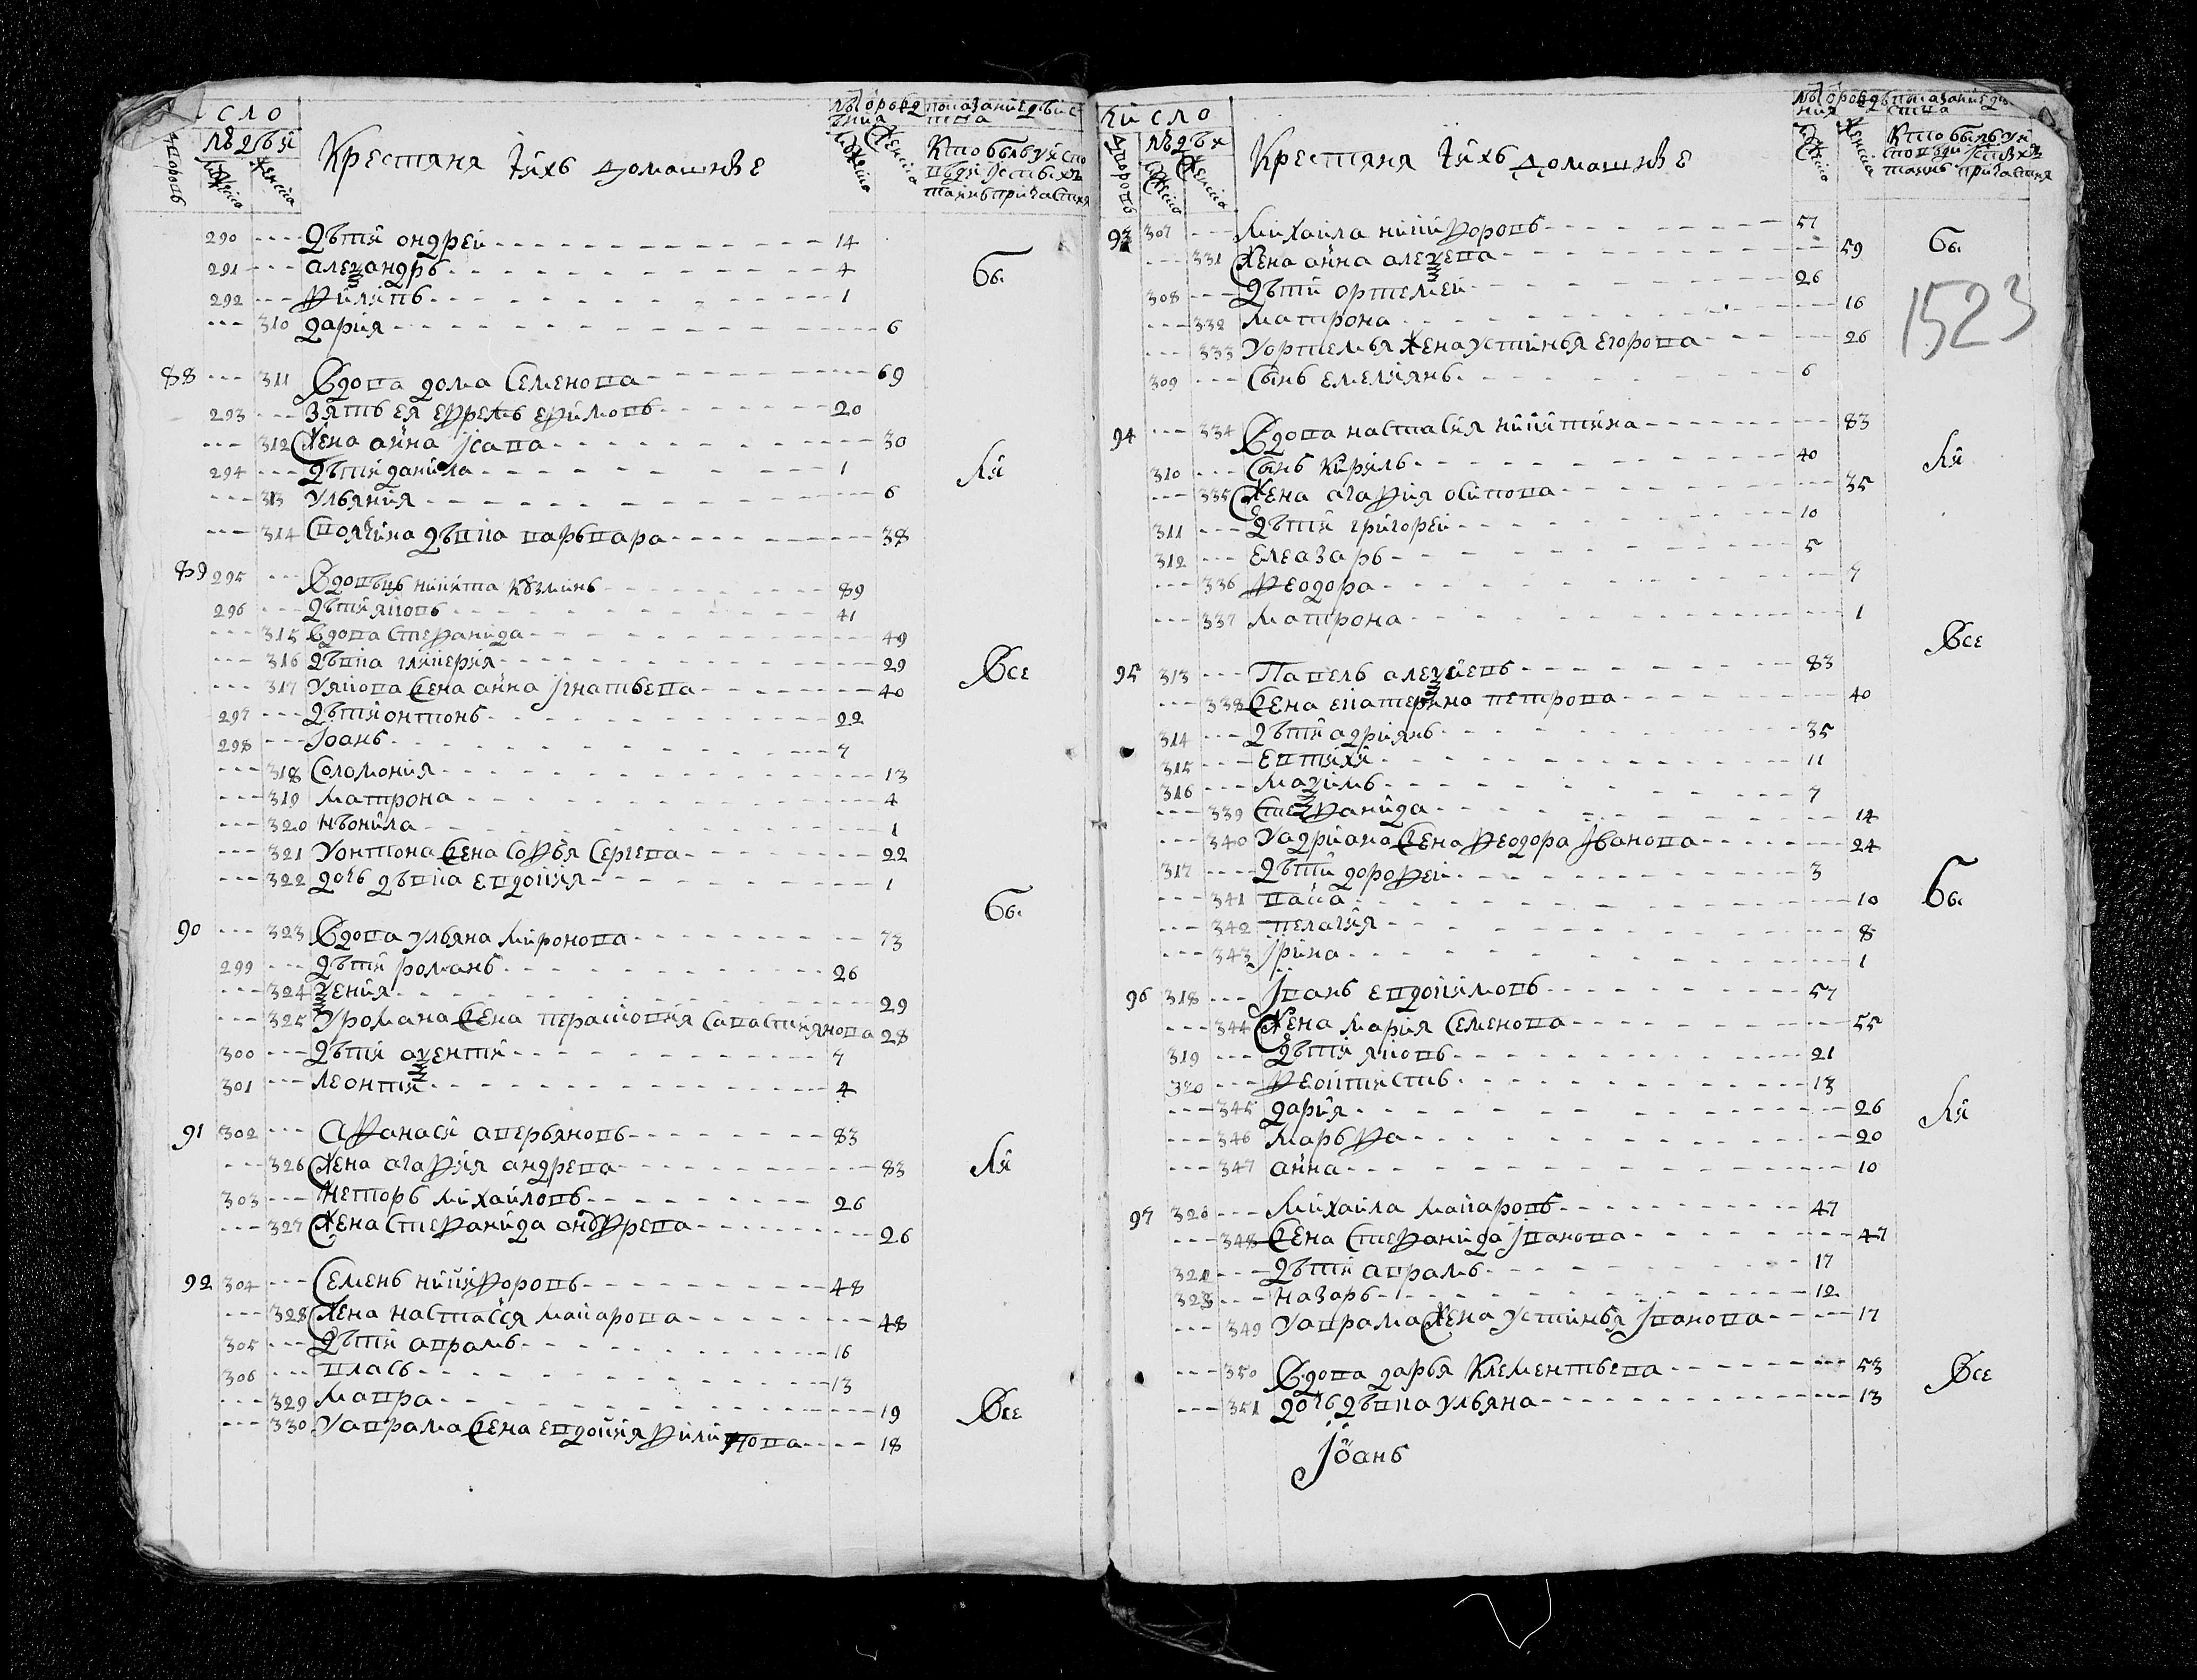 сло
людьй
дворовъ
мужеска
женска
Крестяня іихъ домашніе
лѣ т о рожде
ния
мужеска
женска
показание действ
ства
Кто былъ у испо
вѣди і святыхъ
таинъ причастия
290 --- Дѣти ондрей 14
291 --- алеѯандръ 4
292 --- Филипъ 1
--- 310 дария 6
Бы
88 --- 311 Вдова дома Семенова 69
293 --- Зять ея ефремъ ефимовъ 20
--- 312 Жена анна Ісава 30
294 --- Дѣти данила 1
--- 313 Ульяния 6
--- 314 Своячина дѣвка варьвара 38
ли
89 295 --- Вдовецъ никита Кузминъ 89
296 --- Дѣти яковъ 41
--- 315 вдова Стефанида 49
--- 316 дѣвка гликерия 29
--- 317 Уякова Жена анна Ігнатьева 40
297 --- Дѣти онтонъ 22
298 --- Іоанъ 7
--- 318 Соломония 13
--- 319 матрона 4
--- 320 нѣонила 1
--- 321 Уонтона Жена Софья Сергева 22
--- 322 дочь дѣвка евдокия 1
Все
Бы
90 --- 323 Вдова ульяна миронова 73
299 --- Дѣти романъ 26
--- 324 ѯения 29
--- 325 Уромана Жена перасковия Савастиянова 28
300 --- Дѣти аѯентий 7
301 --- леонтий 4
91 302 --- Афанаси аверьяновъ 83
--- 326 Жена агафия андрева 83
303 --- Неторъ михайловъ 26
--- 327 Жена Стефанида андрева 26
ли
92 304 --- Семенъ никифоровъ 48
--- 328 Жена настасея макарова 48
305 --- Дѣти аврамъ 16
306 --- власъ 13
--- 329 мавра 19
--- 330 Уаврама Жена евдокия филипова 18
Все
чи сло
людьи
дворовъ
мужеска
женска
Крестяня іихъ домашніе
1523
93 307 --- михайла никифоровъ 57
--- 331 Жена анна алеѯева 59
308 --- Дѣти ортемей 26
--- 332 матрона 16
--- 333 Уортемья Жена устинья егорова 26
309 --- Сынъ емелиянъ 6
Бы
94 --- 334 Вдова настасия никитина 83
310 --- Сынъ Кирилъ 40
--- 335 Жена агафия осипова 35
311 --- Дѣти григорей 10
312 --- елеазаръ 5
--- 336 феодора 7
--- 337 матрона 1
ли
Все
95 313 --- Павелъ алеѯиевъ 83
--- 338 Жена екатерина петрова 40
314 --- Дѣти адриянъ 35
315 --- евтихи 11
316 --- маѯимъ 7
--- 339 Стефанида 14
--- 340 Уадриана Жена феодора Іванова 24
317 --- Дѣти дорофей 3
--- 341 васа 10
--- 342 пелагия 8
--- 343 Ірина 1
Бы
96 318 --- Іванъ евдокимовъ 57
--- 344 Жена мария Семенова 55
319 --- Дѣти яковъ 21
320 --- феоктистъ 13
--- 345 дария 26
--- 346 марьфа 20
--- 347 анна 10
ли
97 320 --- михайла макаровъ 47
--- 348 Жена Стефанида Іванова 47
321 --- Дѣти аврамъ 17
323 --- назаръ 12
--- 349 Уаврама Жена устинья Іванова 17
--- 350 Вдова дарья Клементьева 53
--- 351 дочь дѣвка ульяна 13
Все
Іоанъ